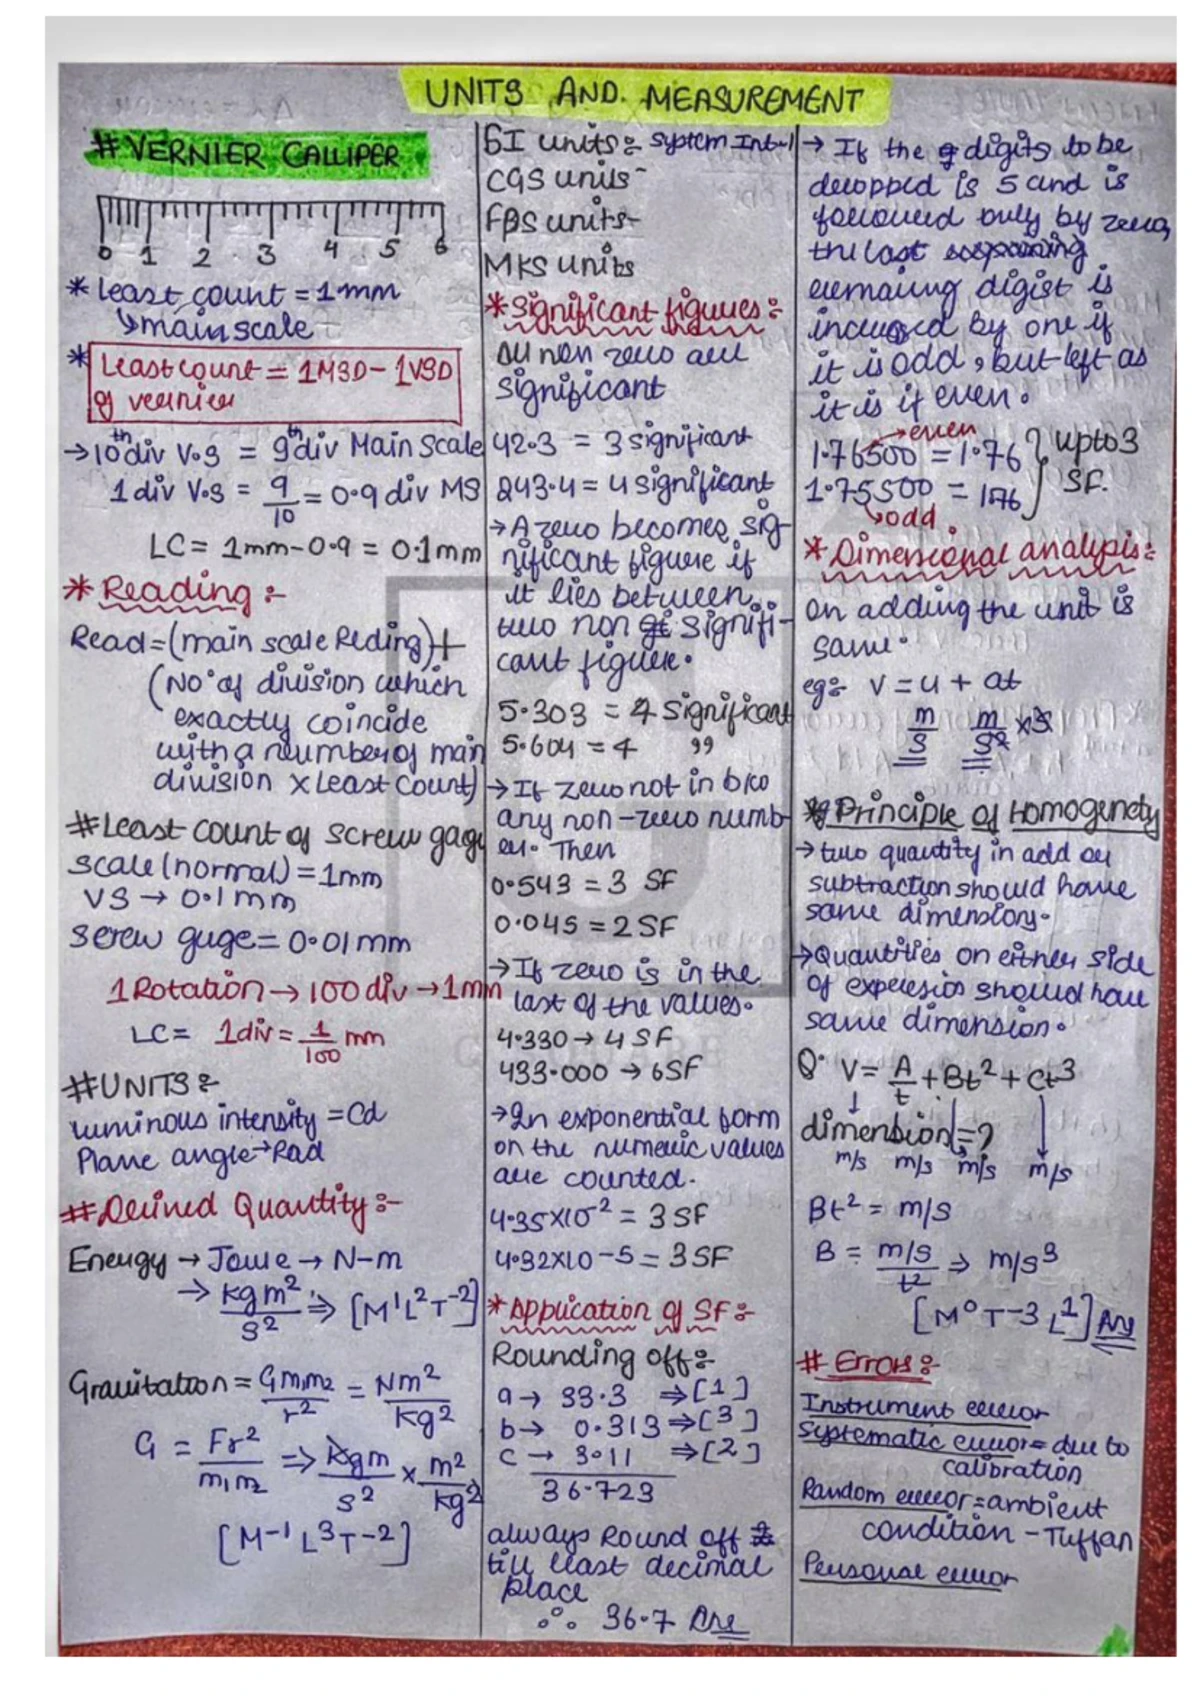 UNITS AND. MEASUREMENT
# VERNIER CALLIPER
0 1 2 3 4 5 6
* least count = 1mm
↳main scale
* Least count = 1MSD - 1VSD
of vernier
→10th div V.S = 9th div Main Scale
1 div V.S = 9/10 = 0.9 div MS
LC = 1mm-0.9 = 0.1mm
* Reading :-
Read=(main scale Reding)+
(No. of division which
exactly coincide
with a number of main
division x Least count)
#Least count of screw gage
scale (normal) = 1mm
VS → 0.1mm
screw guge = 0.01mm
1 Rotation → 100 div → 1mm
LC = 1div = 1/100 mm
#UNITS :-
luminous intensity = Cd
Plane angle→Rad
#Derived Quantity :-
Energy → Joule → N-m
→ kgm²/s² ⇒ [M¹L²T⁻²]
Gravitation = Gm₁m₂/r² = Nm²/kg²
G = Fr²/m₁m₂ ⇒ kgm/s² x m²/kg²
[M⁻¹L³T⁻²]
SI units :- system Int-l
CGS units-
FPS units-
MKS units
*Significant figures :-
All non zero are
significant
42.3 = 3 significant
243.4 = 4 significant
→ A zero becomes sig-
nificant figure if
it lies between
two non signifi-
cant figure.
5.303 = 4 Significant
5.604 = 4 "
→ If zero not in b/w
any non-zero numb-
er. Then
0.543 = 3 SF
0.045 = 2SF
→ If zero is in the
last of the values.
4.330 → 4 SF
433.000 → 6SF
→ In exponential form
on the numeric values
are counted.
4.35x10⁻² = 3 SF
4.32x10-5 = 3SF
*Application of SF :-
Rounding off :-
a → 33.3 ⇒ [1]
b → 0.313 ⇒ [3]
c → 3.11 ⇒ [2]
36.723
always Round off
till least decimal
place
∴ 36.7 Ans
→ If the digits to be
dropped is 5 and is
followed only by zero,
the last
remaing digist is
incresed by one if
it is odd, but left as
it is if even.
→even
1.76500 = 1.76 } upto 3
1.75500 = 176 } SF.
↳odd
* Dimensional analysis :-
on adding the unit is
same.
eg:- V = u + at
m/s m/s² x s
* Principle of Homogenety
→ two quantity in add or
subtraction should have
same dimension.
→Quantities on either side
of expression should have
same dimension.
Q. V = A/t + Bt² + Ct³
dimension = ?
m/s m/s m/s m/s
Bt² = m/s
B = m/s/t² ⇒ m/s³
[M⁰T⁻³L¹] Ans
# Errors :-
Instrument error
Systematic error = due to
calibration
Random error = ambient
condition - Tuffan
Personal error